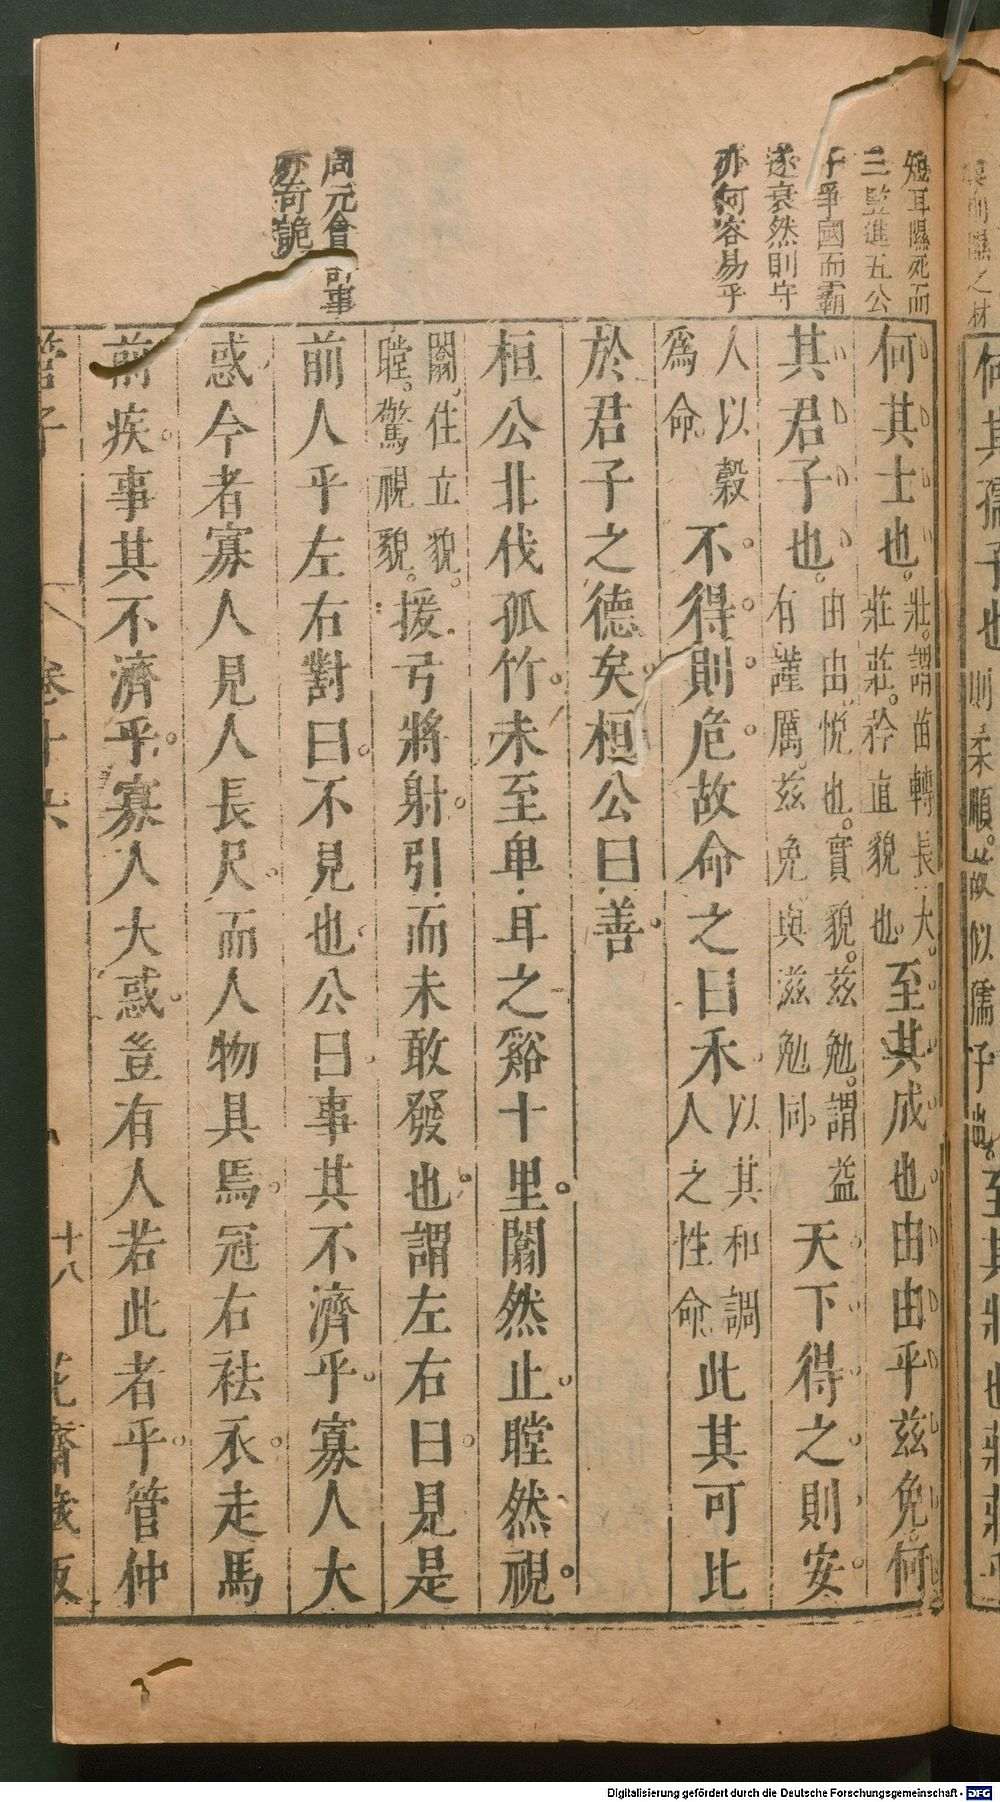 短耳隰死而
三監進五公
子爭國而霸
遂衰然則守
亦何容易乎
周元會 事
亦奇詭
何其士也壯謂苗轉長大
莊莊矜直貌也至其成也由由乎茲免何
其君子也由由悅也實貌茲勉謂益
有謹厲茲免與滋勉同天下得之則安
人以穀
爲命不得則危故命之曰禾以其和調
人之性命此其可比
於君子之德矣桓公曰善
桓公北伐孤竹未至卑耳之谿十里闟然止瞠然視
闟住立貌
瞠驚視貌援弓將射引而未敢發也謂左右曰見是
前人乎左右對曰不見也公曰事其不濟乎寡人大
惑今者寡人見人長尺而人物具焉冠右祛衣走馬
前疾事其不濟乎寡人大惑豈有人若此者乎管仲
管子
卷十六
十八
花齋藏板
何其孺子也則柔順故似儒子也至其壯也莊莊乎
Digitalisierung gefördert durch die Deutsche Forschungsgemeinschaft - DFG